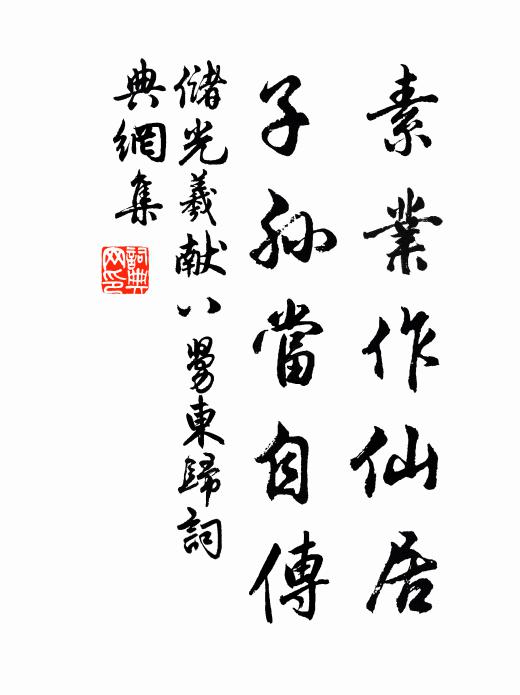 素業作仙居
子孫當自傳
儲光羲献八舅東歸詞
典網集
詞典网印